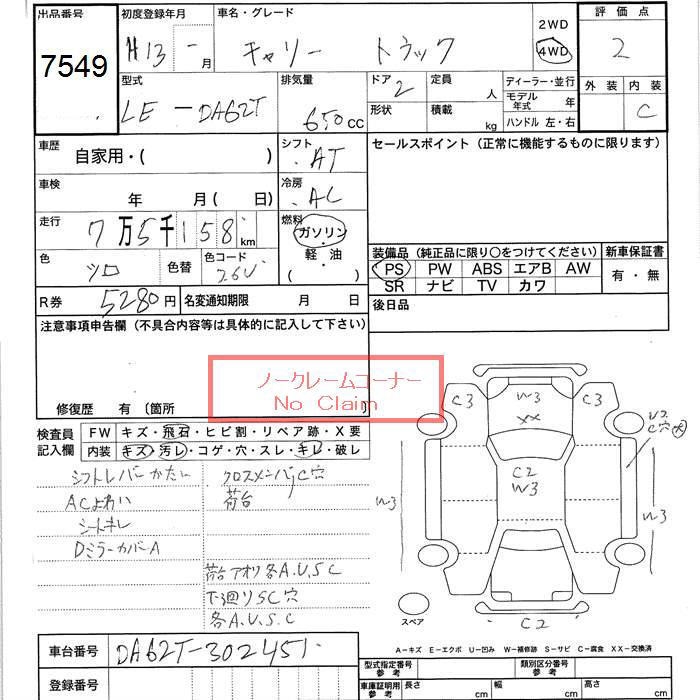 出品番号 初度登録年月 車名・グレード 2WD 評価点
7549 H13 - 月 キャリー トラック 4WD 2
型式 排気量 ドア 定員 ディーラー・並行 外装 内装
LE-DA62T 650cc 2 人 モデル年式 年 C
形状 積載 kg ハンドル 左・右
車歴 自家用・( ) シフト AT セールスポイント(正常に機能するものに限ります)
車検 年 月( 日) 冷房 AC
走行 7万5千158km 燃料 ガソリン・軽油・( )
装備品(純正品に限り〇をつけてください) 新車保証書
色 シロ 色替 色コード 26U PS PW ABS エアB AW 有・無
SR ナビ TV カワ
R券 5280円 名変通知期限 月 日 後日品
注意事項申告欄(不具合内容等は具体的に記入して下さい)
ノークレームコーナー
No Claim
修復歴 有〔箇所
検査員記入欄 FW キズ・飛石・ヒビ割・リペア跡・X要
内装 キズ・汚レ・コゲ・穴・スレ・キレ・破レ
シフトレバーかたい クロスメンバーC穴
ACよわい 荷台
シートキレ
DミラーカバーA
荷台アオリ各A.U.S.C
下廻りSC穴
各A.U.S.C
C3 W3 C3
XX
U2
C穴大
C2
W3
W3 W3
スペア C2
A-キズ E-エクボ U-凹み W-補修跡 S-サビ C-腐食 XX-交換済
車台番号 DA62T-302451
登録番号
型式指定番号 参考 類別区分番号 参考
車庫証明用 参考 長さ cm 幅 cm 高さ cm